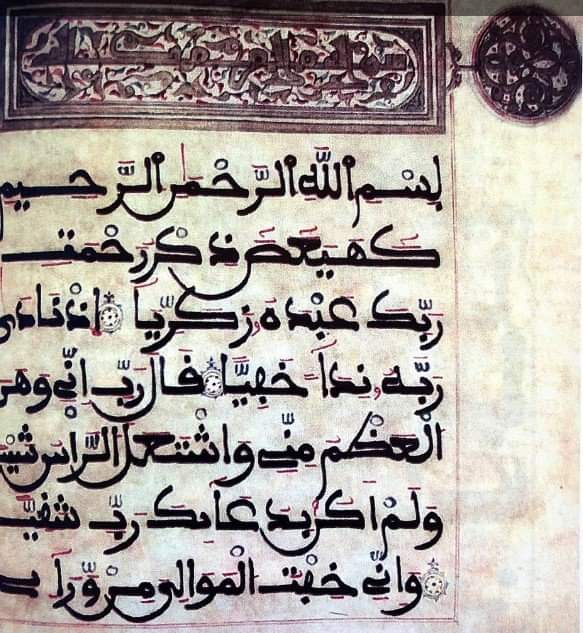 بِسْمِ اللَّهِ الرَّحْمَنِ الرَّحِيم
كَهيعَصَ ذِكْرُ رَحْمَتِ
رَبِّكَ عَبْدَهُ زَكَرِيَّا إِذْ نَادَى
رَبَّهُ نِدَاءً خَفِيًّا قَالَ رَبِّ إِنِّي وَهَنَ
الْعَظْمُ مِنِّي وَاشْتَعَلَ الرَّاسُ شَيْبـ
وَلَمْ أَكُن بِدُعَائِكَ رَبِّ شَقِيّـ
وَإِنِّي خِفْتُ الْمَوَالِيَ مِنْ وَّرَاءِ